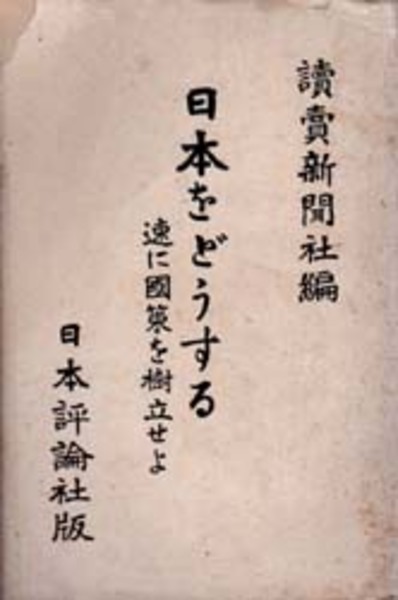 讀賣新聞社編
日本をどうする
速に國策を樹立せよ
日本評論社版